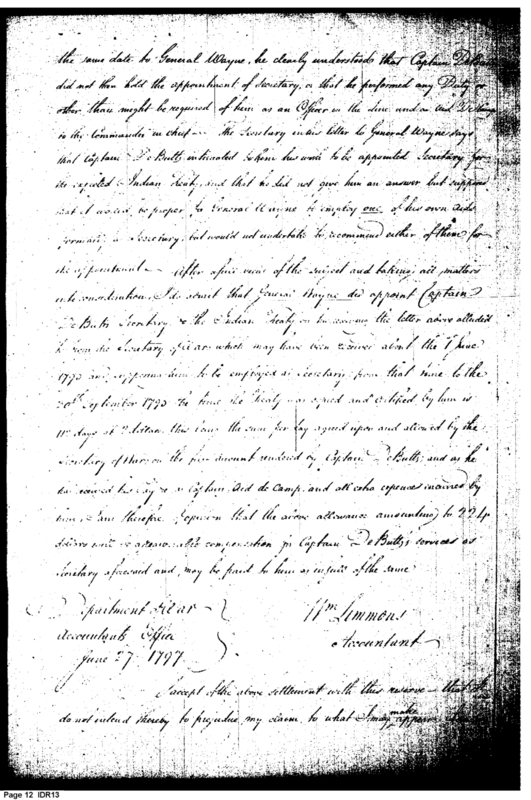 the same date to General Wayne, he clearly understood that Captain DeButts
did not then hold the appointment of Secretary, or that he performed any Duty or
other than might be required of him as an Officer in the Line and as Aid De Camp
to the Commander in chief — The Secretary in his letter to General Wayne says
that Captain DeButts intimated to him his wish to be appointed Secretary for
the expected Indian Treaty and that he did not give him an answer but supposed
that it would be proper for General Wayne to employ one of his own aids
formally as Secretary, but would not undertake to recommend either of them for
the appointment — After a full view of the subject and taking all matters
into consideration, I do admit that General Wayne did appoint Captain
DeButts Secretary to the Indian Treaty on his receiving the letter above alluded
to from the Secretary of War which may have been received about the 1st June
1795 and suppose him to be employed as Secretary from that time to the
20th September 1795 the time the Treaty was signed and certified by him is
112 days at 2 dollars this being the sum per day agreed upon and allowed by the
Secretary of War on the first amount rendered by Captain DeButts; and as he
has received his pay as a Captain, Aid de Camp, and all extra expences incurred by
him, I am therefore of opinion that the above allowance amounting to 224
dollars will be a reasonable compensation for Captain DeButts's services as
Secretary aforesaid and may be paid to him in full of the same
Department of War
Accountants Office
June 27 1797
Wm Simmons
Accountant
I accept of the above settlement with this reserve — that I
do not intend thereby to prejudice my claim to what I may make appear
Page 12 IDR13